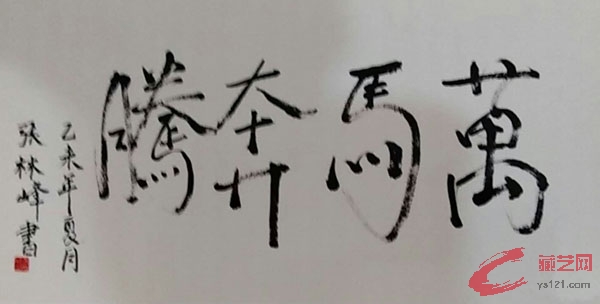 萬馬奔騰
乙未年夏月
張林峰書
藏艺网
ys121.com